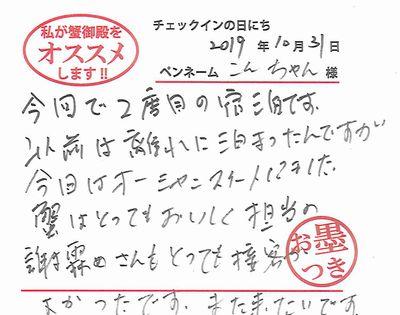 私が蟹御殿を
オススメ
します!!
チェックインの日にち
2019 年 10 月 31 日
ペンネーム こんちゃん 様
今回で2度目の宿泊です。
以前は離れに泊まったんですが
今回はオーシャンスイートにしました。
蟹はとってもおいしく担当の
さんもとっても接客が
よかったです。また来たいです。
お墨つき